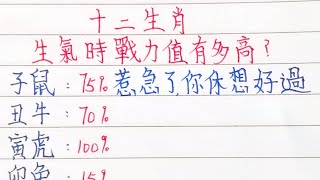 十二生肖
生氣時戰力值有多高?
子鼠:75%惹急了你休想好過
丑牛:70%
寅虎:100%
卯兔:15%